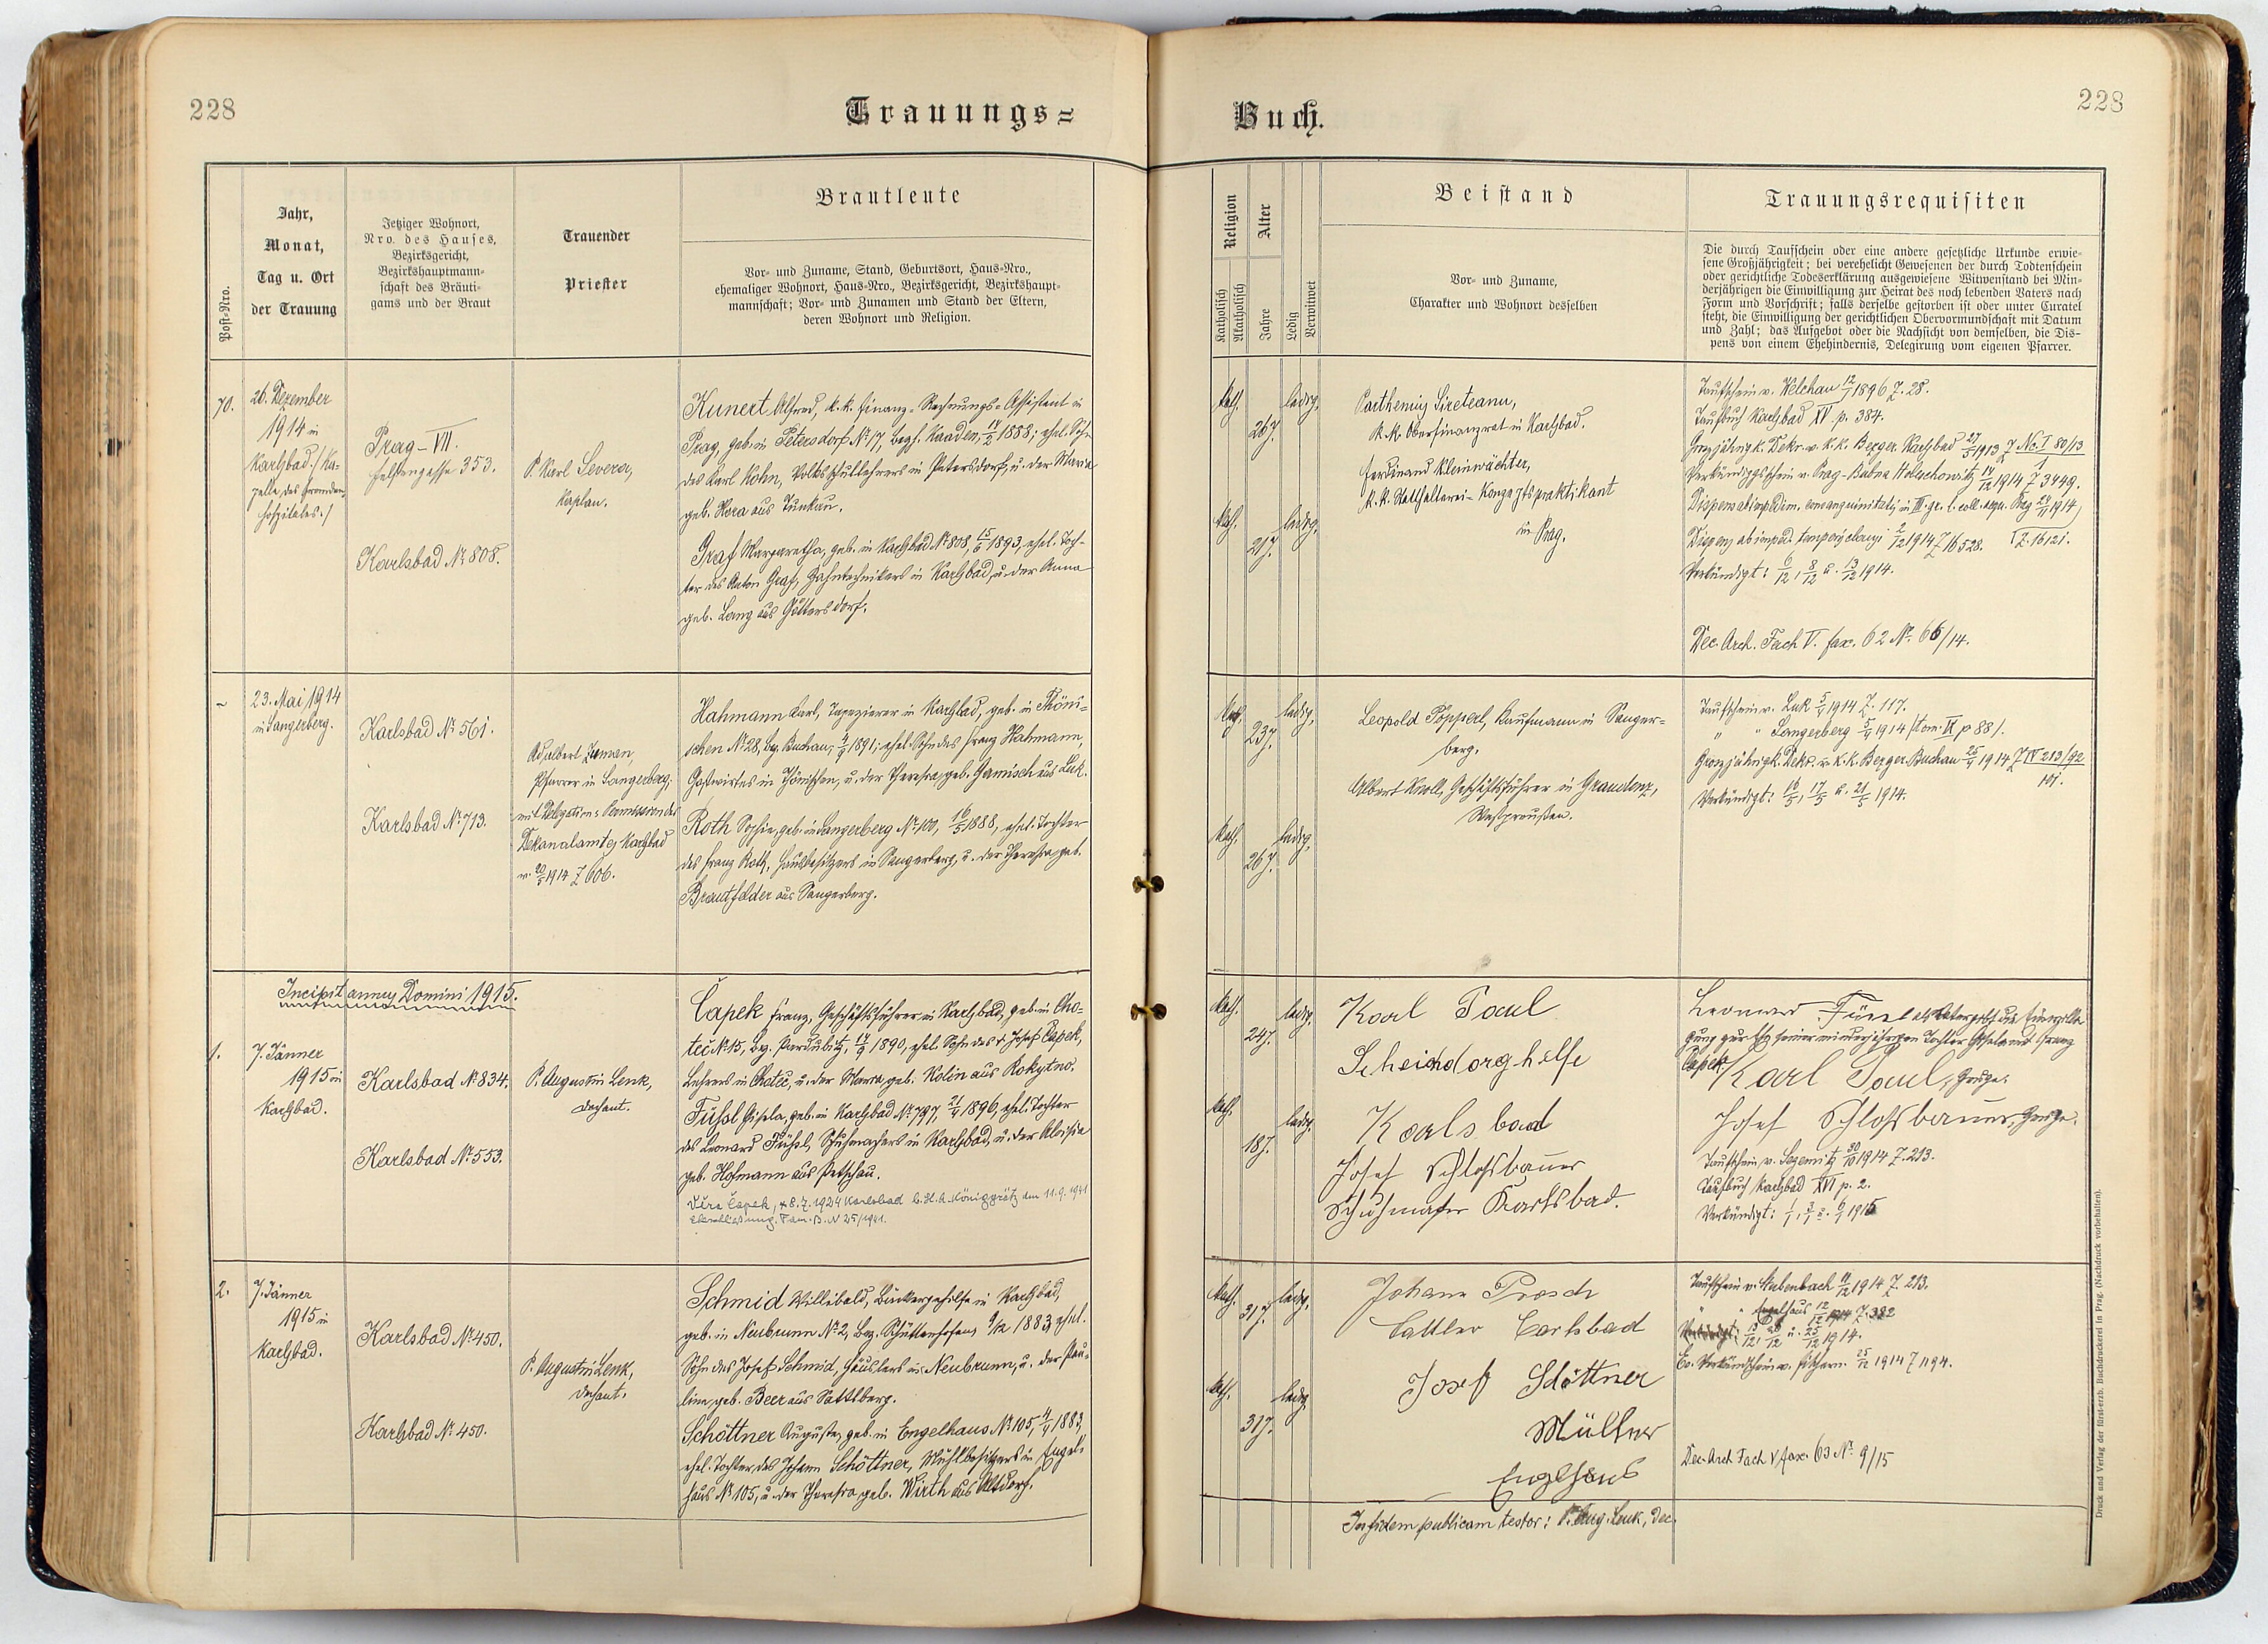 228
Trauungs=
Post=Nro.
Jahr,
Monat,
Tag u. Ort
der Trauung
Jetziger Wohnort,
Nro. des Hauses,
Bezirksgericht,
Bezirkshauptmann=
schaft des Bräuti=
gams und der Braut
Trauender
Priester
Brautleute
Vor= und Zuname, Stand, Geburtsort, Haus=Nro.,
ehemaliger Wohnort, Haus=Nro., Bezirksgericht, Bezirkshaupt=
mannschaft; Vor= und Zunamen und Stand der Eltern,
deren Wohnort und Religion.
70.
26. Dezember
1914 in
Karlsbad /: Ka-
pelle des Fremden
hospitales :/
Prag - VII.
353.
Karlsbad № 808.
P. Karl Severa,
Kaplan.
Kunert Alfred, k. k. Finanz-Rechnungs-Assistent in
Prag, geb. in Petersdorf № 17, Bezh. Kaaden, 1888; ehel. Sohn
des Karl Kohn, Volksschullehrers in Petersdorf, u. der Maria
geb. Hora aus Tunkau.
Graf Margaretha, geb. in Karlsbad № 808, 15/6 1893, ehel. Toch-
ter des Anton Graf, Zahntechnikers in Karlsbad, u. der Anna
geb. Lang aus Gittersdorf.
23. Mai 1914
in Sangerberg.
Karlsbad № 561.
Karlsbad № 713.
Adalbert Zeman,
Pfarrer in Sangerberg,
mit Delegations-Permission des
Dekanalamtes Karlsbad
v. 20/5 1914 Z 606.
Hahmann Karl, Tapezierer in Karlsbad, geb. in Thöni-
schen № 28, Bez. Buchau, 4/2 1891; ehel. Sohn des Franz Hahmann,
Gastwirtes in Thönischen, u. der Theresia, geb. Gamisch aus Luk.
Roth Sophie, geb. in Sangerberg № 100, 16/5 1888, ehel. Tochter
des Franz Roth, Hausbesitzers in Sangerberg, u. der Theresia, geb.
Brandfelder aus Sangerberg.
Incipit annus Domini 1915.
1.
7. Jänner
1915 in
Karlsbad.
Karlsbad № 834.
Karlsbad № 553.
P. Augustin Lenk,
Dechant.
Čapek Franz, Geschäftsführer in Karlsbad, geb. in Cho-
teč № 15, Bez. Pardubitz, 17/9 1890, ehel. Sohn des † Josef Čapek,
Lehrers in Choteč, u. der Maria, geb. Kolin aus Rokytno.
Füssl Gisela, geb. in Karlsbad № 797, 21/4 1896, ehel. Tochter
des Leonard Füssl, Schuhmachers in Karlsbad, u. der Aloisia
geb. Hofmann aus Petschau.
Věra Čapek, * 8.7.1924 Karlsbad B.H.A. Königgrätz den 11.9.1941
2.
7. Jänner
1915 in
Karlsbad.
Karlsbad № 450.
Karlsbad № 450.
P. Augustin Lenk,
Dechant.
Schmid Willibald, Bäckergehilfe in Karlsbad,
geb. in Neubrunn № 2, Bez. Schüttenhofen, 9/12 1883, ehel.
Sohn des Josef Schmid, Häuslers in Neubrunn, u. der Pau-
line, geb. Beer aus Sattlberg.
Schöttner Auguste, geb. in Engelhaus № 105, 1883,
ehel. Tochter des Johann Schöttner, Mühlbesitzers in Engel-
haus № 105, u. der Theresia geb. Wirth aus Altdorf.
Buch.
228
Religion
Katholisch
Akatholisch
Alter
Jahre
Ledig
Verwitwet
Beistand
Vor= und Zuname,
Charakter und Wohnort desselben
Trauungsrequisiten
Die durch Taufschein oder eine andere gesetzliche Urkunde erwie=
sene Großjährigkeit; bei verehelicht Gewesenen der durch Todtenschein
oder gerichtliche Todeserklärung ausgewiesene Witwenstand bei Min=
derjährigen die Einwilligung zur Heirat des noch lebenden Vaters nach
Form und Vorschrift; falls derselbe gestorben ist oder unter Curatel
steht, die Einwilligung der gerichtlichen Obervormundschaft mit Datum
und Zahl; das Aufgebot oder die Nachsicht von demselben, die Dis=
pens von einem Ehehindernis, Delegirung vom eigenen Pfarrer.
kath.
26 J.
ledig.
kath.
21 J.
ledig.
Parthenius Sireteanu,
k. k. Oberfinanzrat in Karlsbad.
Ferdinand Kleinwächter,
k. k. Statthalterei-Konzeptspraktikant
in Prag.
Taufschein v. Welchau 12/7 1896 Z. 28.
Taufbuch Karlsbad XV p. 384.
Grosjährigk. Dekr. v. k. k. Bezger. Karlsbad 27/5 1913 Z Nc. I 80/13
Verkündiggsschein v. Prag-Bubna Holeschowitz 14/12 1914 Z 3449.
Dispens ab imped. temporis clausi 2/12 1914 Z 16528.
Z. 16121.
Verkündigt: 6/12, 8/12 u. 13/12 1914.
Dec. Arch. Fach V. fasc. 62 №. 66/14.
kath.
23 J.
ledig.
kath.
26 J.
ledig.
Leopold Popperl, Kaufmann in Sanger-
berg.
Albert Knoll, Geschäftsführer in Graudenz,
Westpreußen.
Taufschein v. Luk 5/4 1914 Z. 117.
" " Sangerberg 5/4 1914 /tom. IX p 88/.
Grosjährigk. Dekr. v. k. k. Bezger. Buchau 25/4 1914 Z IV 213/92
Verkündigt: 10/5, 17/5 u. 21/5 1914.
kath.
24 J.
ledig.
kath.
18 J.
ledig.
Karl Paul
Karlsbad
Josef Schlossbauer
Schuhmacher Karlsbad.
Leonard Füssl als Vater gibt die Einwilli-
gung zur Ehe seiner minderjährigen Tochter Gisela mit Franz
Čapek.
Karl Paul, Zeuge.
Josef Schlossbauer, Zeuge.
Taufschein v. 30/10 1914 Z. 213.
Taufbuch Karlsbad XVI p. 2.
Verkündigt: 1/1, 3/1 u. 6/1 1915
kath.
31 J.
ledig.
kath.
31 J.
ledig.
Johann Prosch
Sattler Carlsbad
Josef Schöttner
Müller
Engelhaus
Taufschein v. Stubenbach 11/12 1914 Z. 213.
" " Engelhaus 12/12 1914 Z. 382
Verkündigt: 13/12, 20/12 u. 25/12 1914.
Ex. Verkündschein v. Fischern. 25/12 1914 Z 1194.
Dec. Arch. Fach V fasc. 63 №. 9/15
In fidem publicam testor: P. Aug. Lenk, Dec.
Druck und Verlag der fürst-erzb. Buchdruckerei in Prag. (Nachdruck vorbehalten).